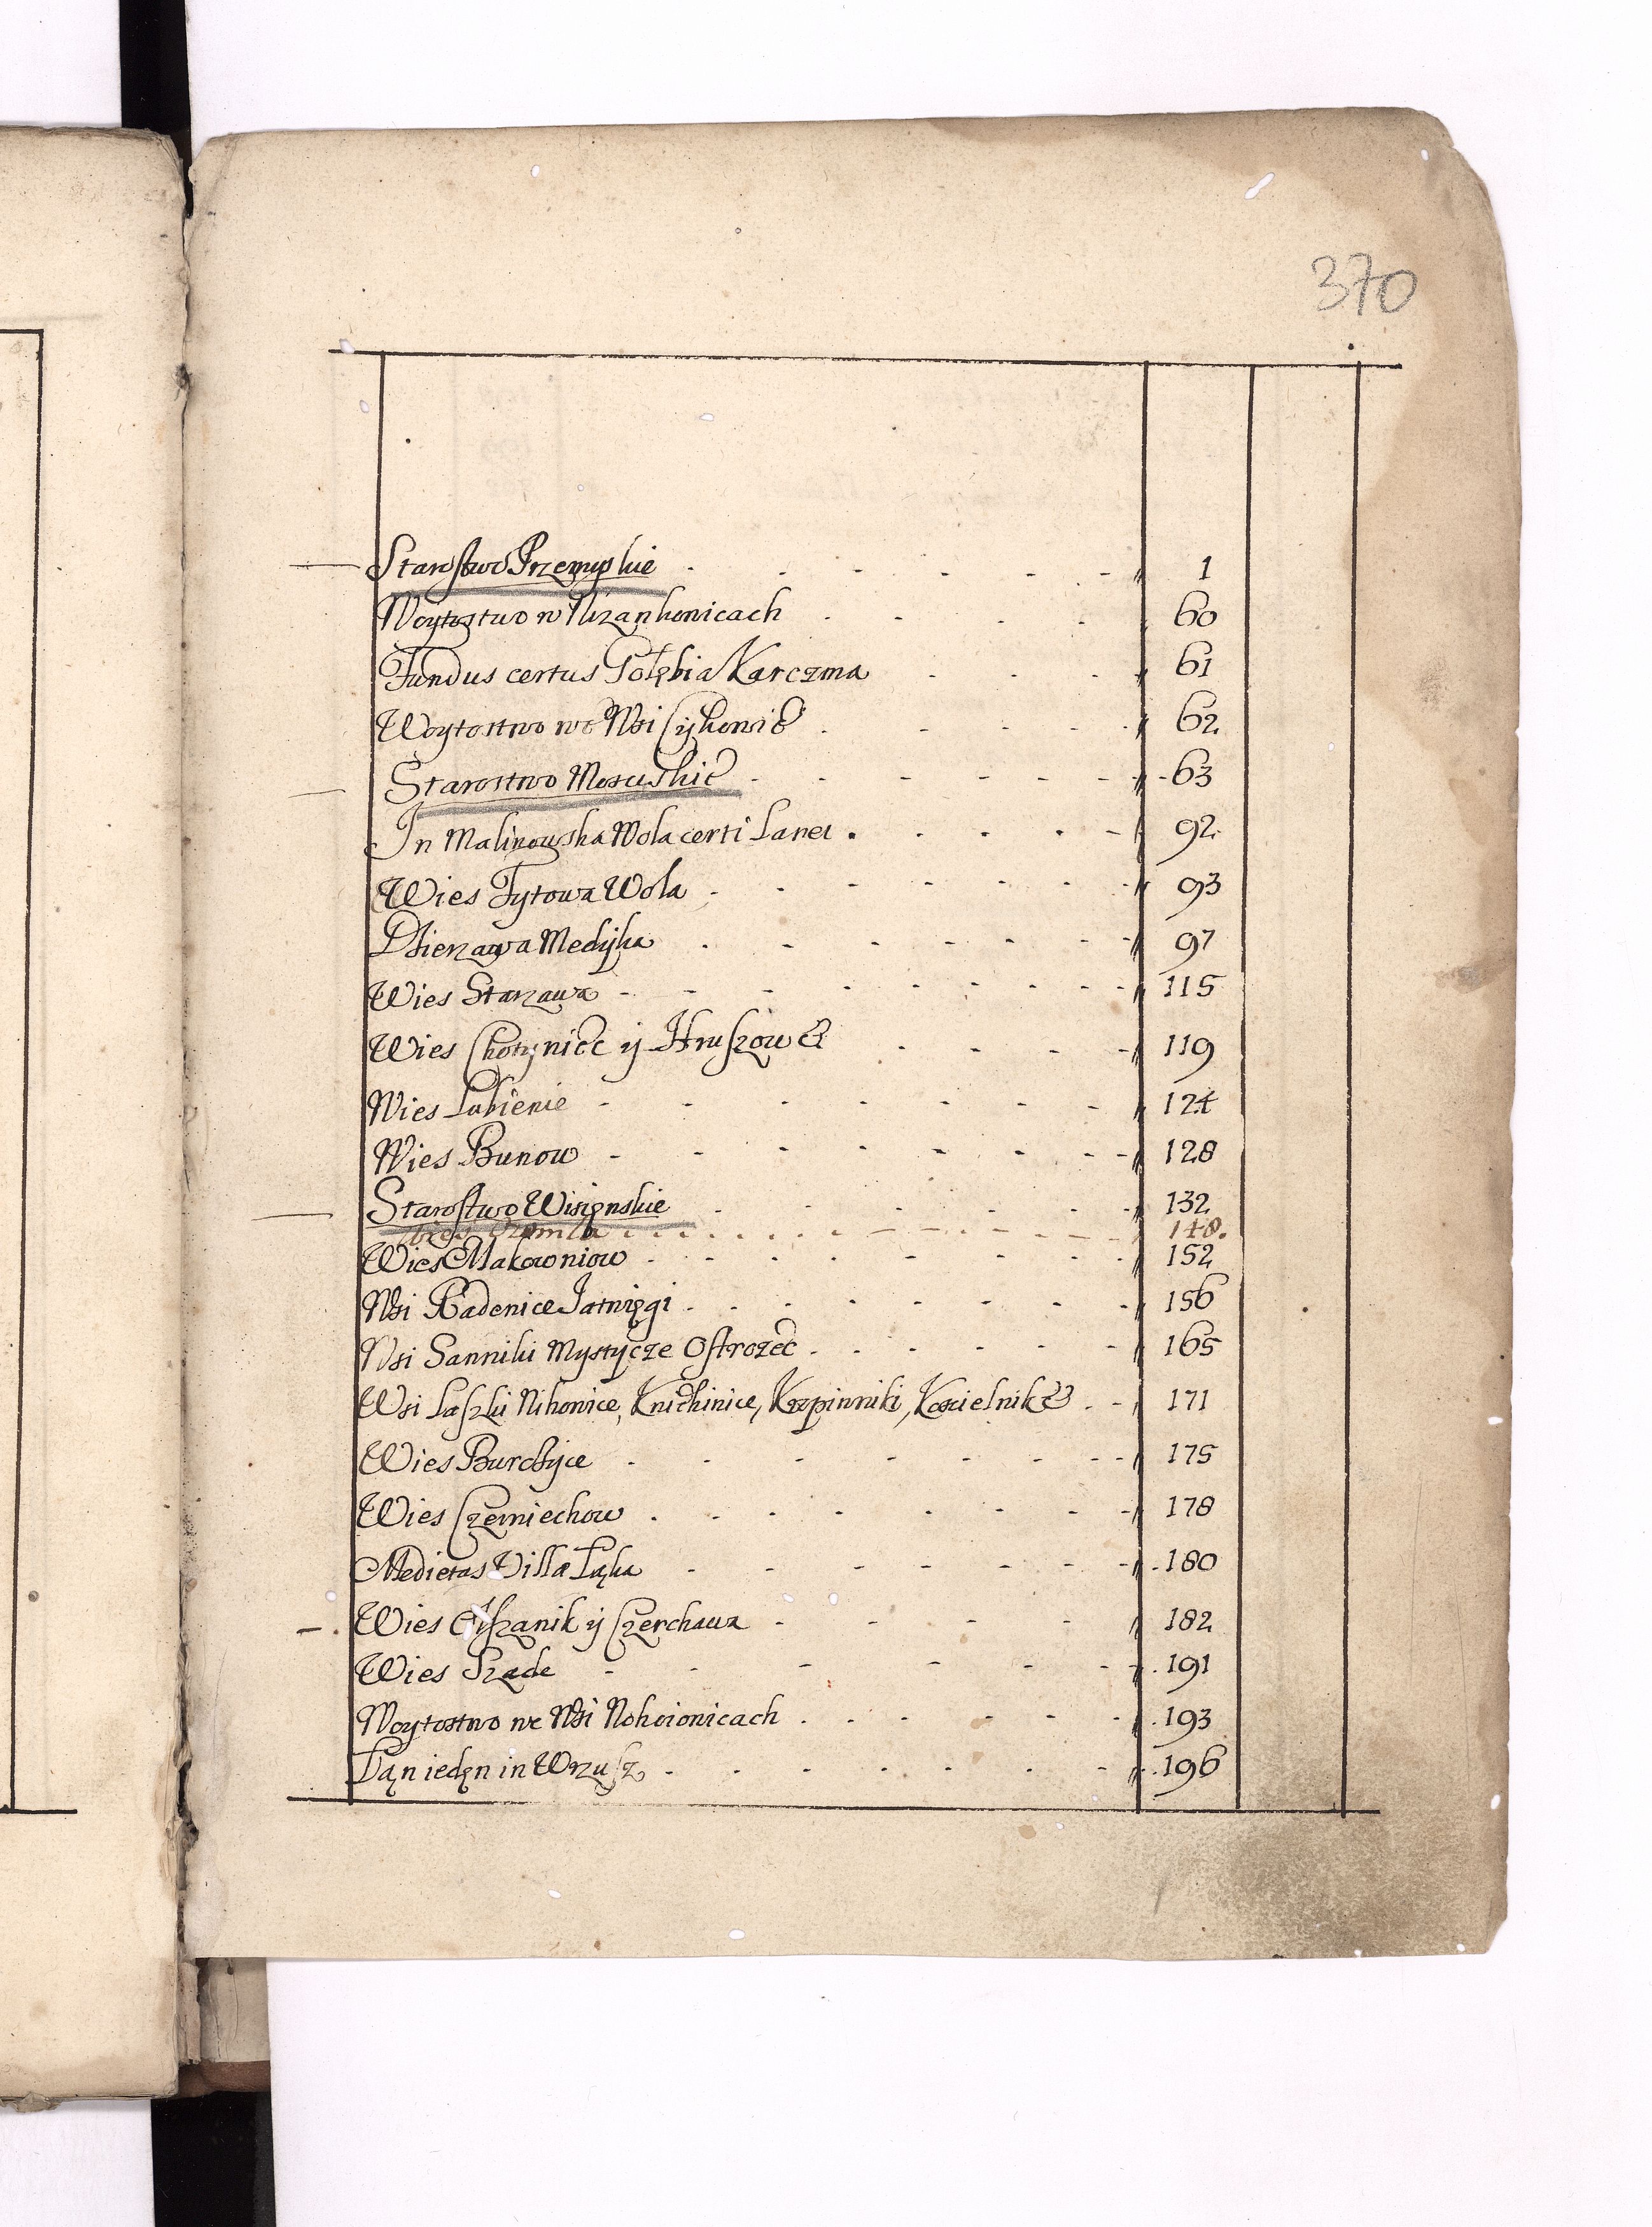 370
Starostwo Przemyskie 1
Woytostwo w Nizankowicach 60
Fundus certus Gołębia Karczma 61
Woytostwo we Wsi Cykowie 62
Starostwo Mosciskie 63
In Malinowska Wola certi Lanei 92
Wies Tytowa Wola 93
Dzierzawa Medyka 97
Wies Starzawa 115
Wies Chotyniec ij Hruszowe 119
Wies Lubienie 124
Wies Bunow 128
Starostwo Wisięnskie 132
Wies 148.
Wies Makowniow 152
Wsi Radenice Jatwięgi 156
Wsi Sanniki Mystycze Ostrozec 165
Wsi Laszki Nihowice, Knichinice, Krzpinniki, Koscielnike 171
Wies Burczyce 175
Wies Czerniechow 178
Medietas Villæ Łąka 180
Wies Olszanik ij Czerchawa 182
Wies Szade 191
Woytostwo we Wsi Nohoionicach 193
Łąn iedęn in 196